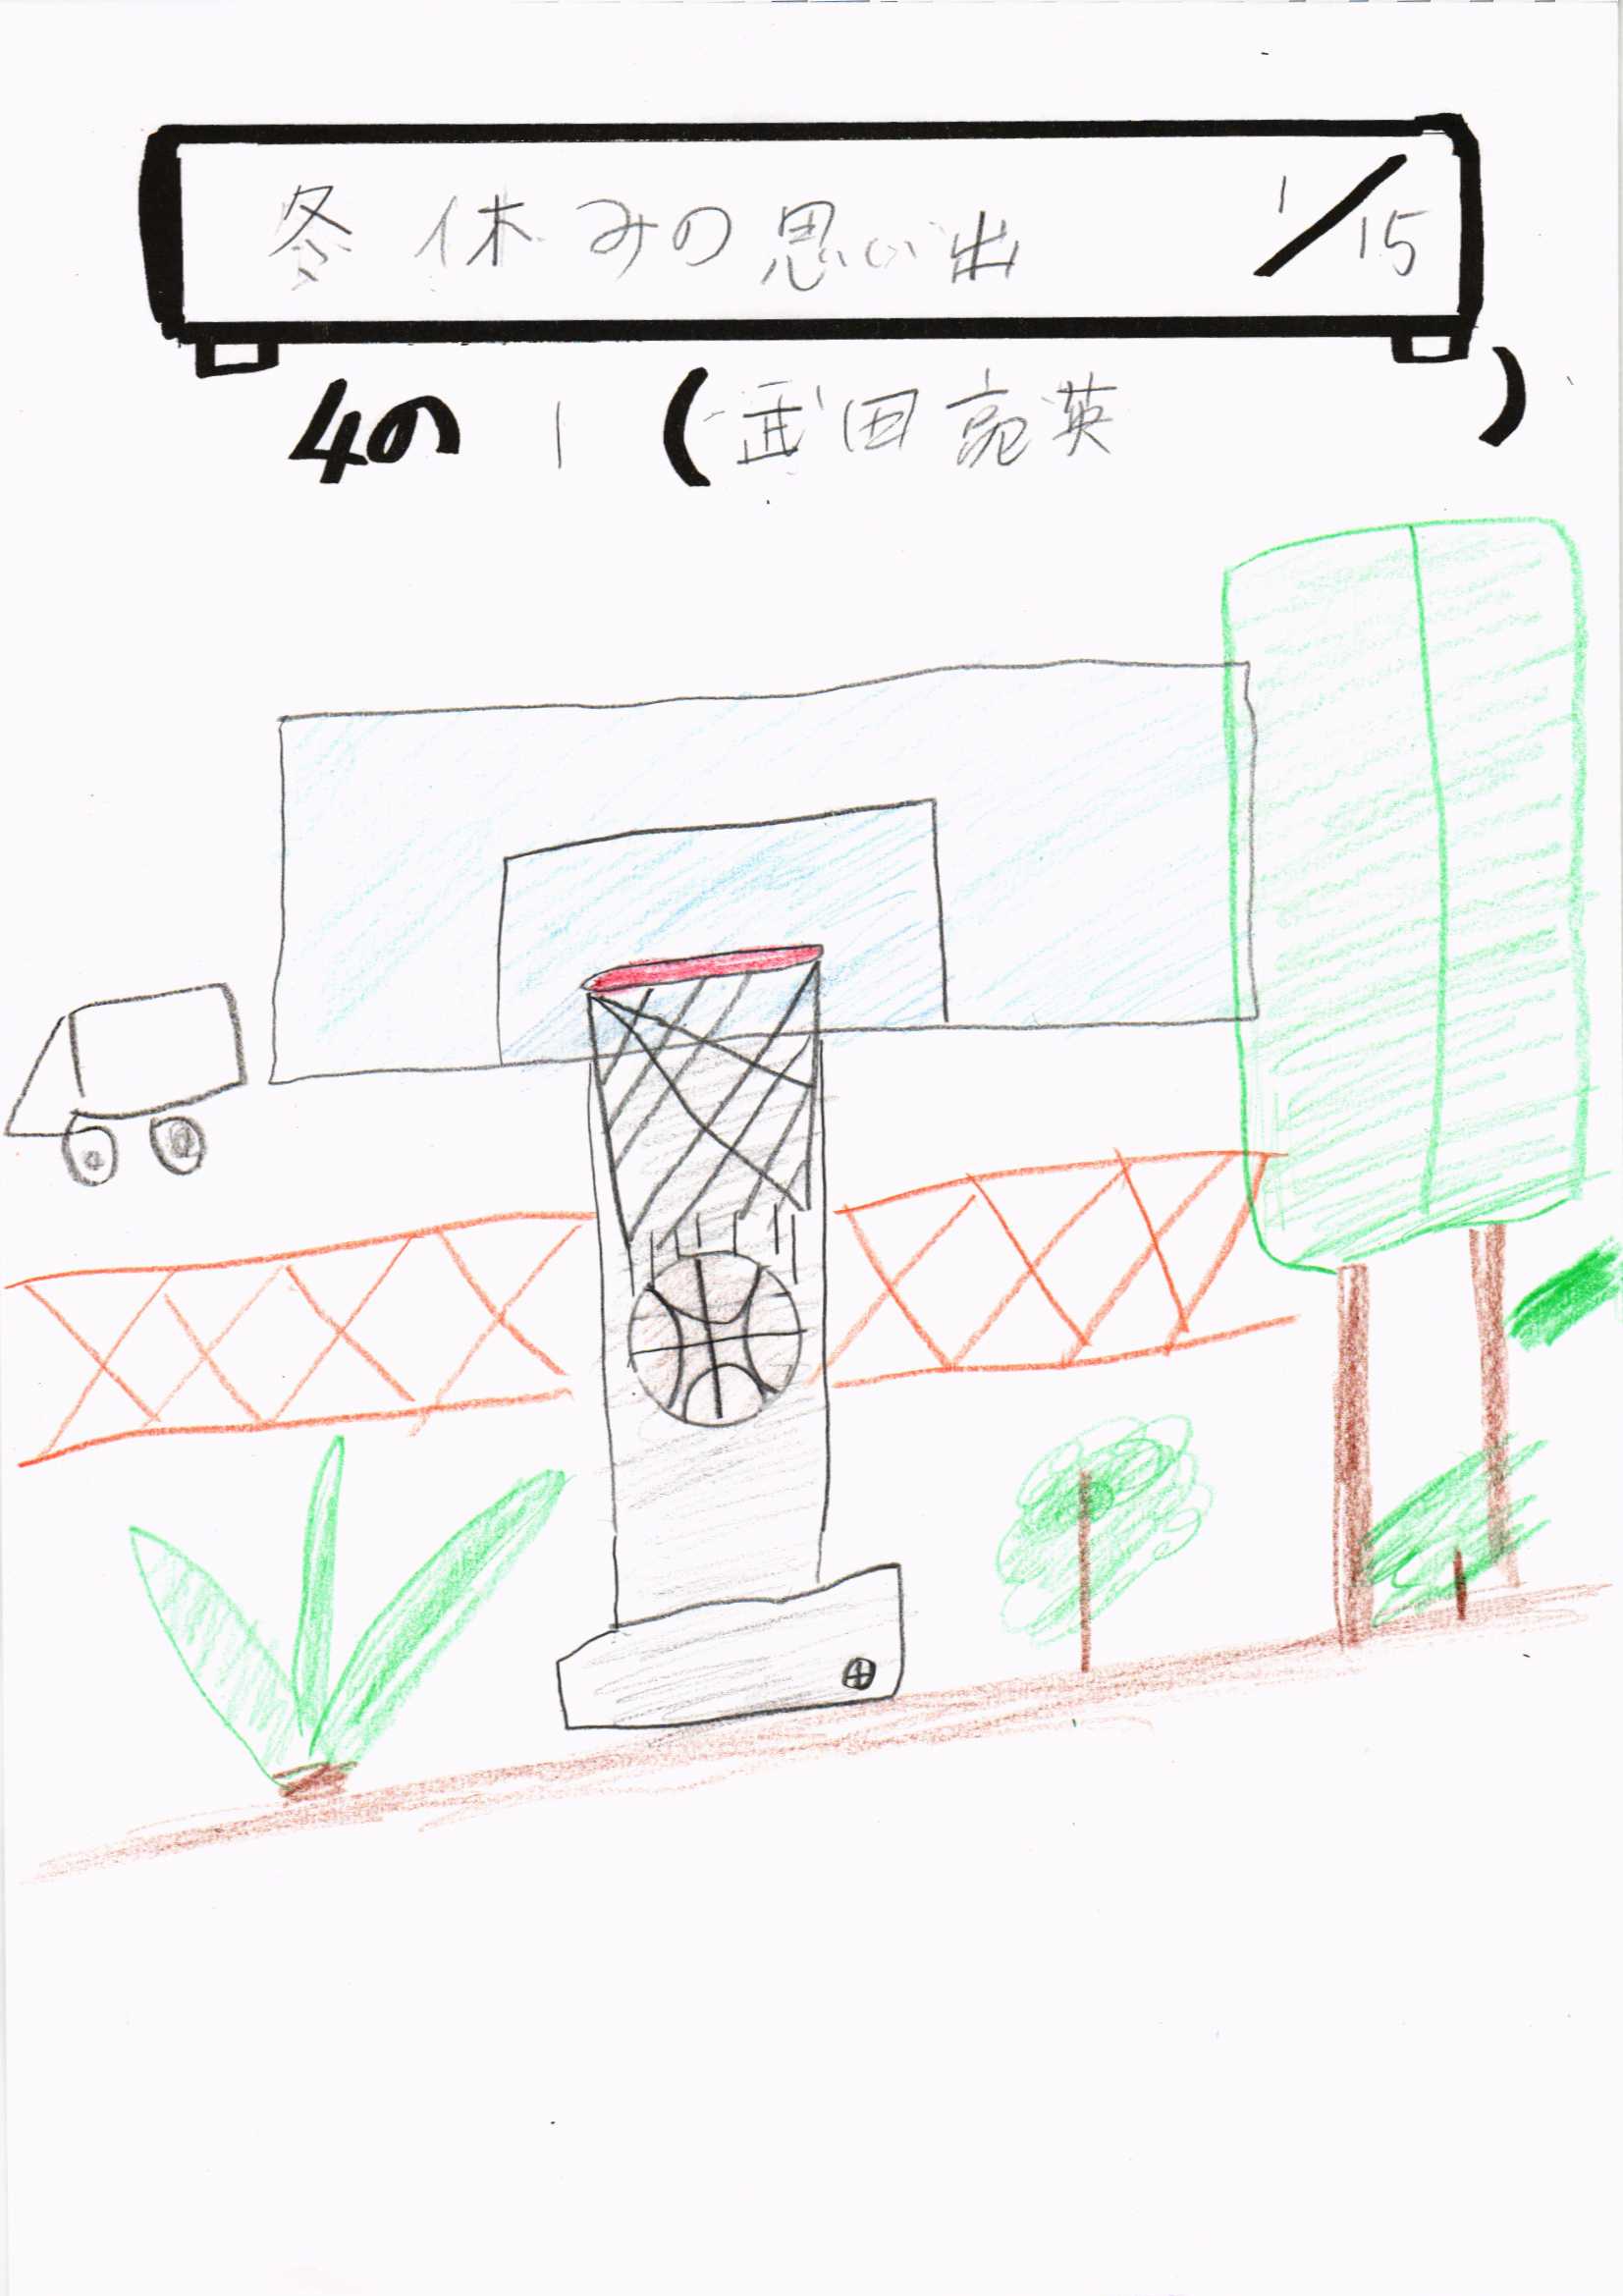 冬休みの思い出 1/15
4の1(武田亮英)